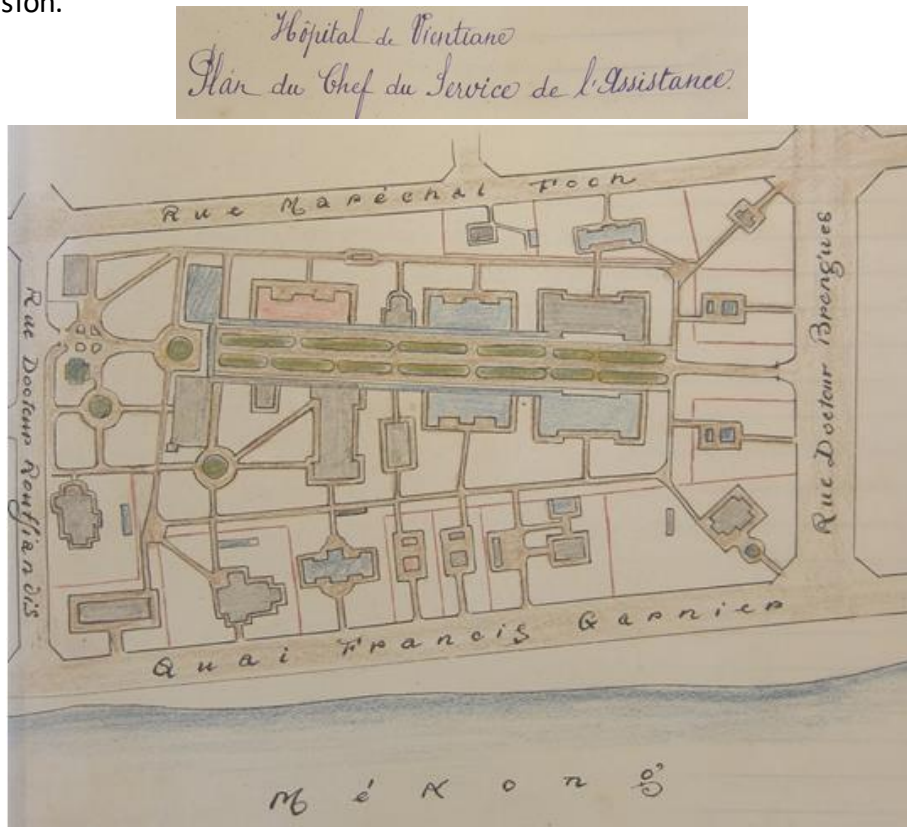 sion.
Hôpital de Vientiane
Plan du Chef du Service de l'Assistance.
Rue Maréchal Foch
Rue Docteur Rouffiandis
Rue Docteur Brengues
Quai Francis Garnier
Mékong